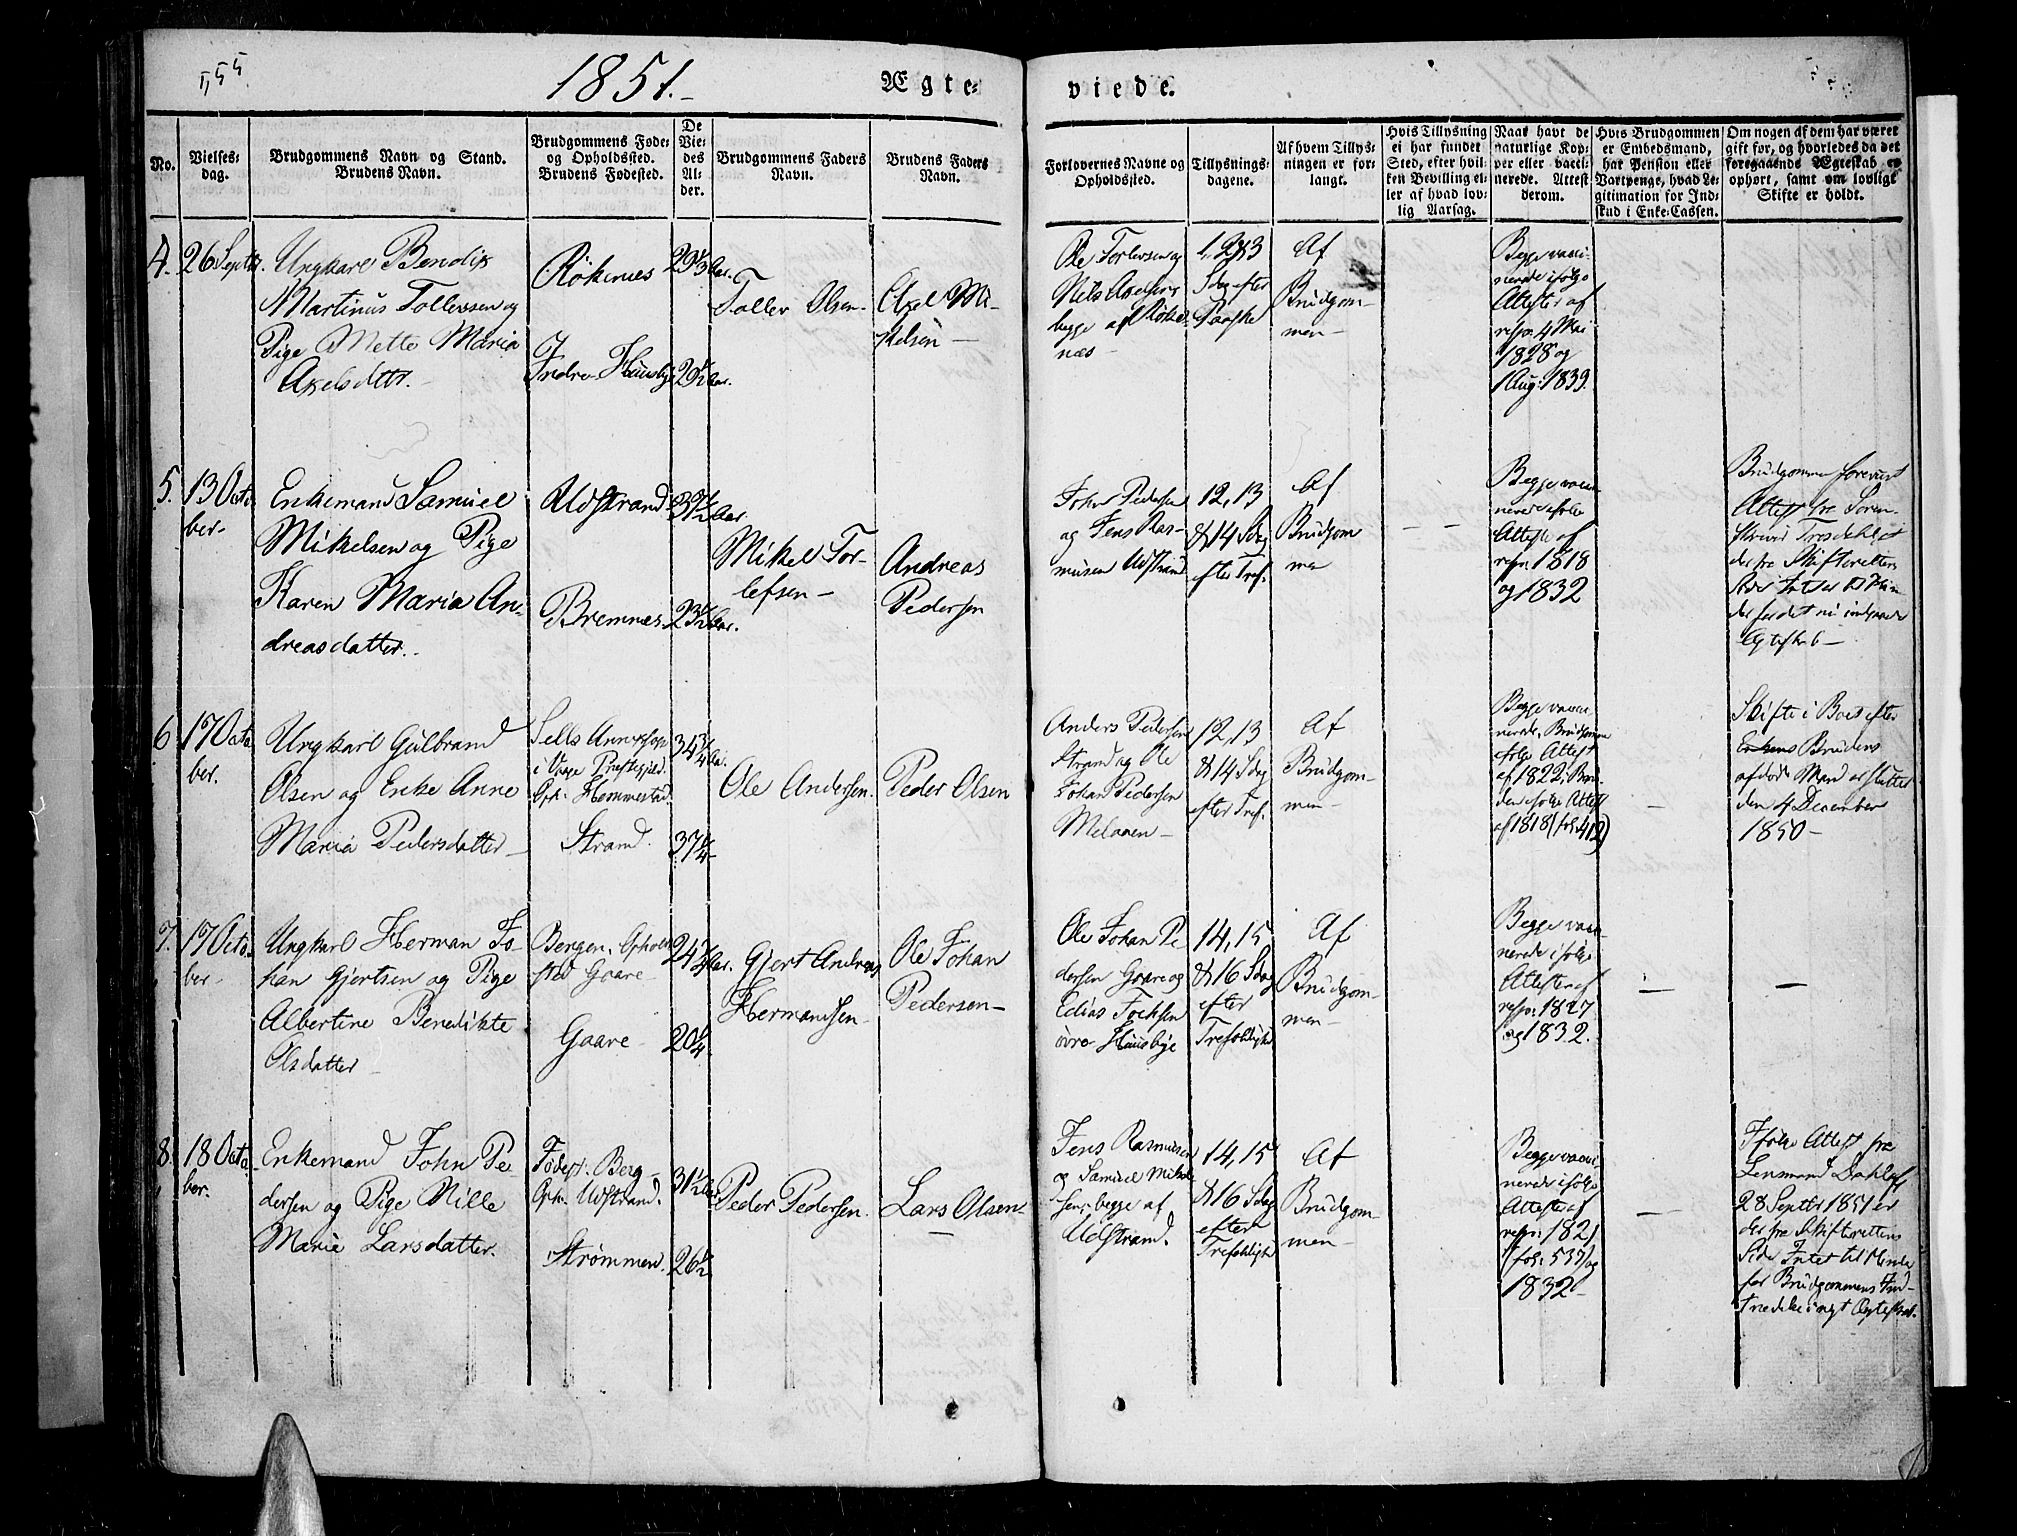 155
1851.
Ægte=
viede.
No.
Vielses=
dag.
Brudgommens Navn og Stand.
Brudens Navn.
Brudgommens Føde=
og Opholdssted.
Brudens Fødested.
De
Vie=
des
Al=
der.
Brudgommens Faders
Navn.
Brudens Faders
Navn.
Forlovernes Navne og
Opholdssted.
Tillysnings=
dagene.
Af hvem Tillys=
ningen er for=
langt.
Hvis Tillysning
ei har fundet
Sted, efter hvil=
ken Bevilling el=
ler af hvad lov=
lig Aarsag.
Naar havt de
naturlige Kop=
per eller vacci=
nerede. Attest
derom.
Hvis Brudgommen
er Embedsmand,
har Pension eller
Vartpenge, hvad Le=
gitimation for Ind=
skud i Enke=Cassen.
Om nogen af dem har været
gift før, og hvorledes da det
foregaaende Ægteskab er
ophørt, samt om lovligt
Skifte er holdt.
4.
26 Septbr.
Ungkarl Bendix
Martinus Tollevsen og
Pige Mette Maria
Axelsdattr.
Rökenes
Indre Huusby
29 1/3 Aar.
29 1/2 Aar.
Tollev Olsen
Axel Mi-
kelsen
Ole Torlevsen og
Nels Axelsen
begge af Röke-
næs
1, 2 & 3
Sdag efter
Paaske
Af
Brudgom-
men
Begge vacci-
nerede ifølge
Attester af
resp. 4 Mai
1828 og
1 Aug: 1839.
5.
13 Octo-
ber
Enkemand Samuel
Mikelsen og Pige
Karen Maria An-
dreasdatter.
Udstrand
Bremnes
Aar.
23 1/2 Aar.
Mikel Tor-
lefsen
Andreas
Pedersen
John Pedersen
og Jens Ras-
musen Udstrand
12, 13
& 14 Sdag
efter Tref.
Af
Brudgom
men
Begge vacci-
nerede ifølge
Attester af
resp. 1818
og 1832
Brudgommen foreviist
Attest fra Soren-
skriver
der fra Skifterettens
Side Intet til Hin-
der for det nu indgaaede
Ægteskab
6
17 Octo-
ber.
Ungkarl Gulbrand
Olsen og Enke Anne
Maria Pedersdatter
Sells Annexsogn
i Vage Præstegjeld.
Oph. Hemmestad.
Strand.
34 3/4 Aar.
37 1/4
Ole Andersen.
Peder Olsen
Anders Pedersen
Strand og Ole
Johan Pedersen
Melaaen
12, 13
& 14 Sdag
efter Tref.
Af
Brudgom-
men
Begge vacci-
nerede, Brudgommen
ifølge Attest
af 1822, Bru-
den ifølge Attest
af 1818 (fol: 412)
Skifte i Boet efter
Enkens Brudens
afdøde Mand er sluttet
den 4 December
1850
7.
17 Octo-
ber
Ungkarl Herman Jo-
han Gjertsen og Pige
Albertine Benedikte
Olsdatter
Bergen. Ophold
sted Gaare
Gaare
24 1/4 Aar.
20 1/4
Gjert Andreas
Hermandsen
Ole Johan
Pedersen
Ole Johan Pe
dersen Gaare og
Edias Jochsen
övre Huusbye
14, 15
& 16 Sdag
efter
Trefoldighd
Af
Brudgom-
men
Begge vacci-
nerede ifølge
Attester af
resp. 1827
og 1832.
8.
18 Octo-
ber.
Enkemand John Pe
dersen og Pige Nille
Marie Larsdatter.
Födest. Berg
Oph. Udstrand.
Strømmen.
31 1/2 Aar
26 1/2
Peder Pedersen.
Lars Olsen
Jens Rasmussen
og Samuel Mikel-
sen, begge af
Udstrand.
14, 15
& 16 Sdag
efter
Trefoldighd
Af
Brudgom-
men
Begge vacci-
nerede ifølge
Attester af
resp. 1821
(fol: 537) og
1832
Ifølge Attest fra
Lensmand Dahl af
28 Septbr 1851 er
der fra Skifterettens
Side Intet til Hinder
for Brudgommens Ind-
trædelse i nyt Ægteskab.